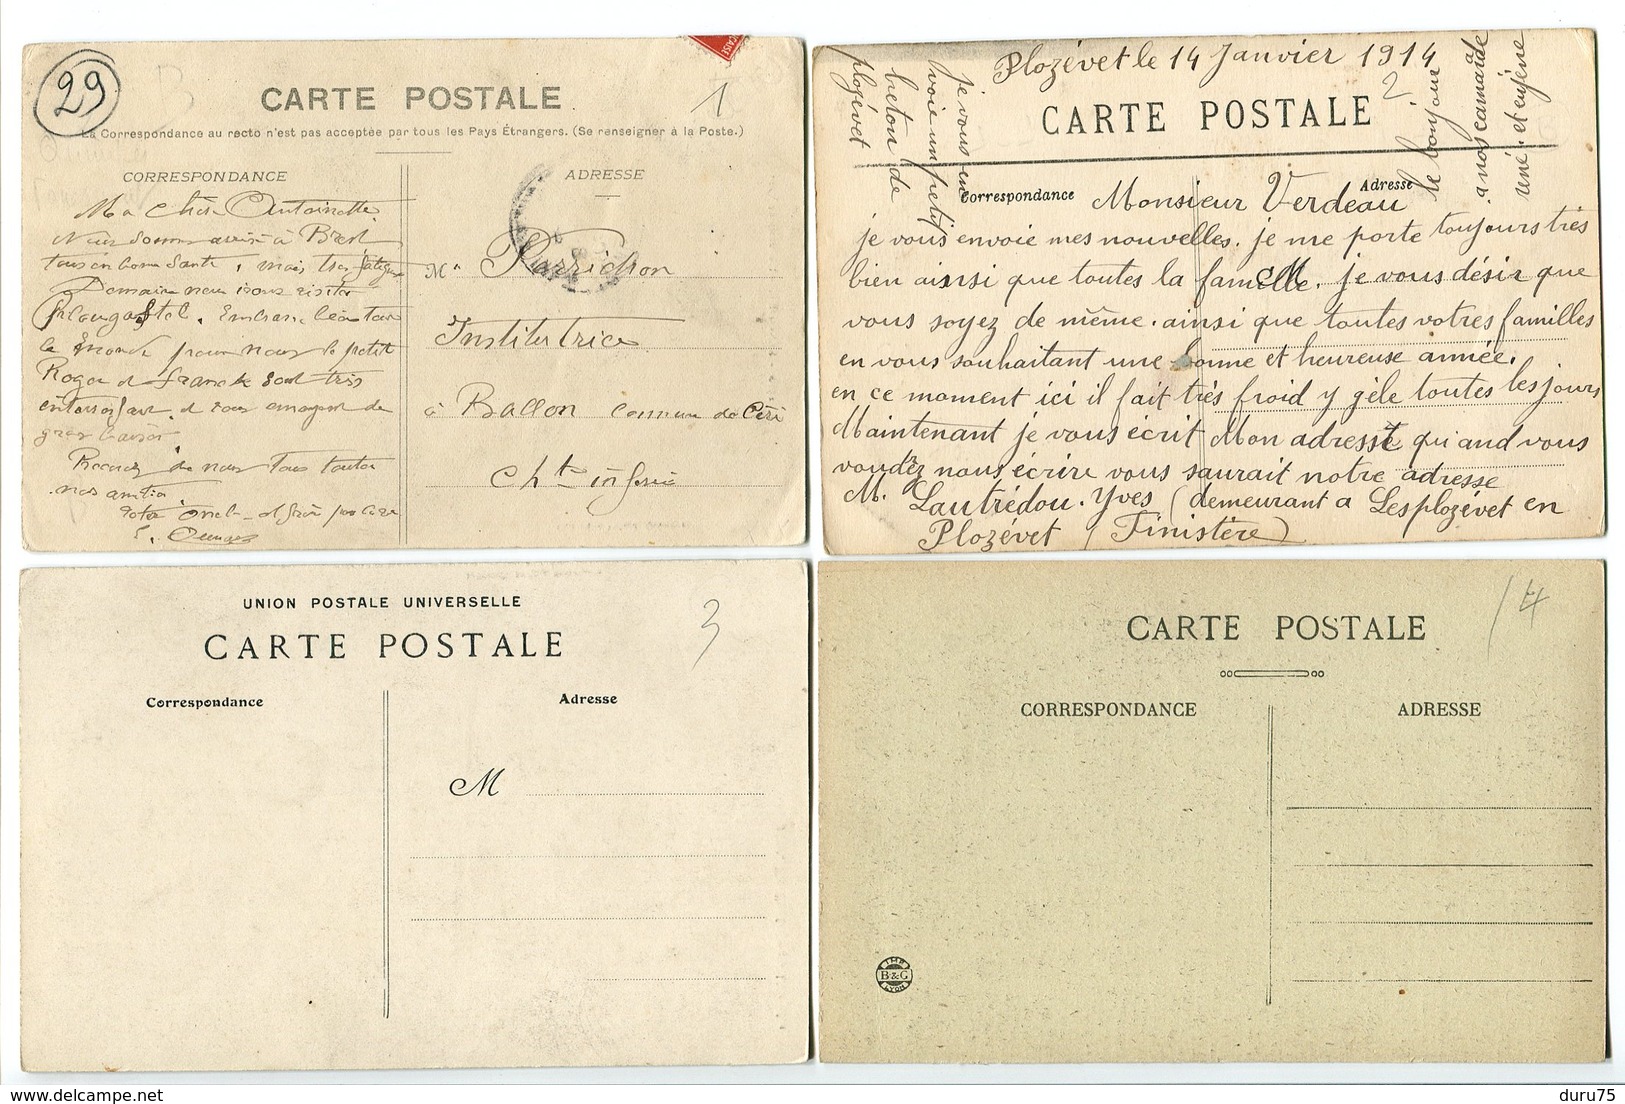 29
CARTE POSTALE
1
La Correspondance au recto n'est pas acceptée par tous les Pays Étrangers. (Se renseigner à la Poste.)
CORRESPONDANCE
ADRESSE
Ma Chère Antoinette
Nous sommes arrivé à Brest
tous en bonne santé, mais très fatigué
Demain nous irons visiter
Plougastel. Embrasse bien tout
le monde pour nous le petit
Roger et
et vous envoyons de
gros baisers
nous tous toutes
nos amitiés
Votre Oncle
Mme Parrichon
Institutrice
à Ballon Commune de Ciré
Chte infre
Plozévet le 14 Janvier 1914
2
CARTE POSTALE
Correspondance
Adresse
Monsieur Verdeau
je vous envoie mes nouvelles. je me porte toujours très
bien ainsi que toutes la famille. M je vous désir que
vous soyez de même. ainsi que toutes votres familles
en vous souhaitant une bonne et heureuse année.
en ce moment ici il fait très froid y gèle toutes les jours
Maintenant je vous écrit Mon adresse quand vous
voudrez nous écrire vous saurait notre adresse
M. Lautrédou. Yves (demeurant a Lesplozévet en
Plozévet (Finistère)
je vous en
voie un petit
breton de
plozévet
le bonjour
a nos camarade
rené. et eugène
UNION POSTALE UNIVERSELLE
CARTE POSTALE
3
Correspondance
Adresse
M
CARTE POSTALE
4
CORRESPONDANCE
ADRESSE
IMP.
B & G
LYON
delcampe.net
duru75